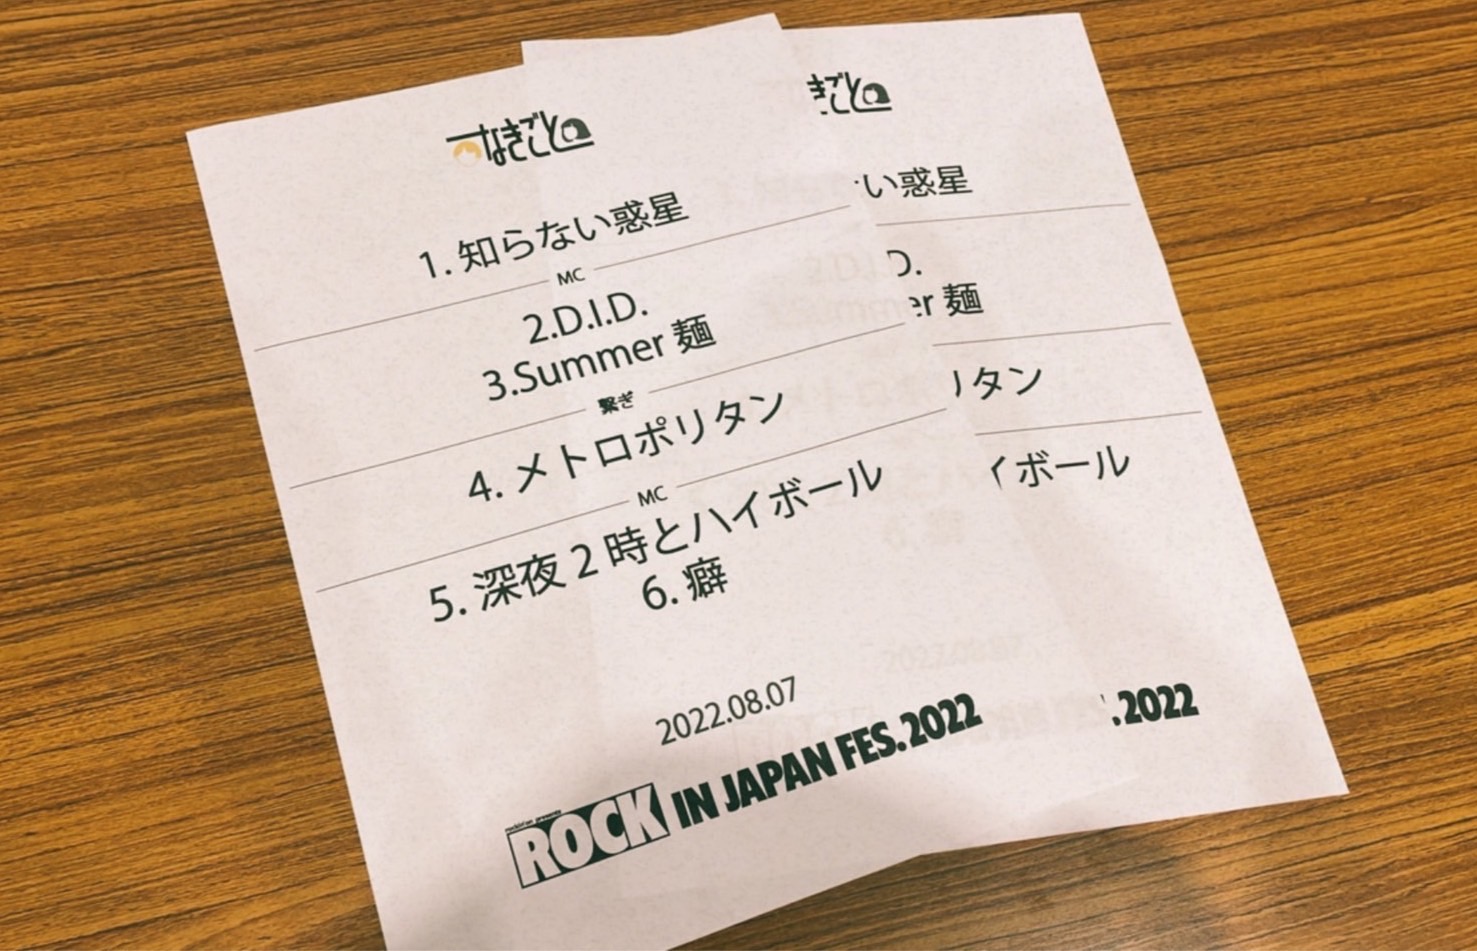 なきごと
1. 知らない惑星
MC
2.D.I.D.
3.Summer 麺
繋ぎ
4. メトロポリタン
MC
5. 深夜 2 時とハイボール
6. 癖
2022.08.07
rockin'on presents
ROCK IN JAPAN FES.2022
きごと
い惑星
D.
er 麺
リタン
イボール
.2022